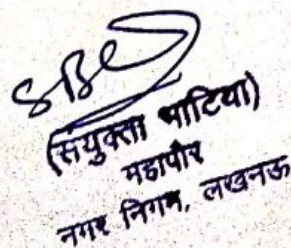 (संयुक्ता भाटिया)
महापौर
नगर निगम, लखनऊ